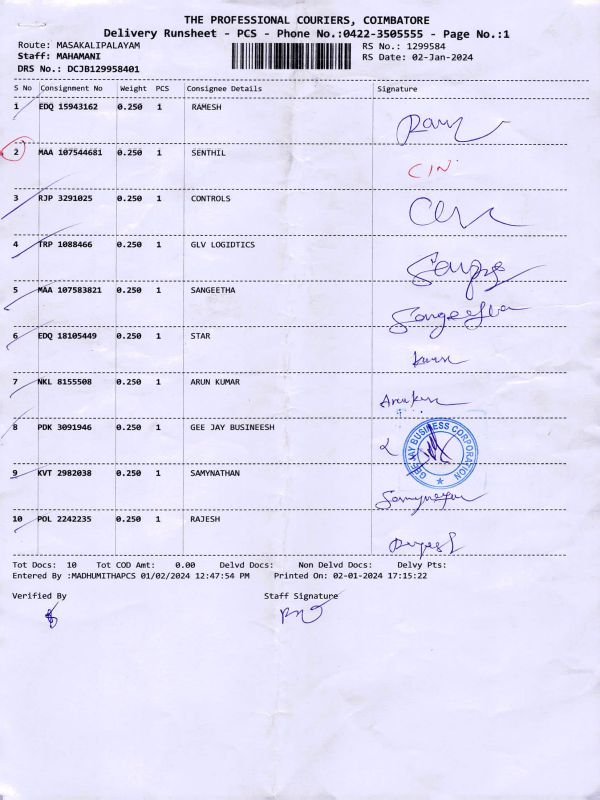 THE PROFESSIONAL COURIERS, COIMBATORE
Delivery Runsheet - PCS - Phone No.:0422-3505555 - Page No.:1
Route: MASAKALIPALAYAM RS No.: 1299584
Staff: MAHAMANI RS Date: 02-Jan-2024
DRS No.: DCJB129958401
S No Consignment No Weight PCS Consignee Details Signature
1 EDQ 15943162 0.250 1 RAMESH
2 MAA 107544681 0.250 1 SENTHIL
CIN
3 RJP 3291025 0.250 1 CONTROLS
4 TRP 1088466 0.250 1 GLV LOGIDTICS
5 MAA 107583821 0.250 1 SANGEETHA
Sangeetha
6 EDQ 18105449 0.250 1 STAR
7 NKL 8155508 0.250 1 ARUN KUMAR
8 PDK 3091946 0.250 1 GEE JAY BUSINEESH
GEE JAY BUSINESS CORPORATION
9 KVT 2982038 0.250 1 SAMYNATHAN
10 POL 2242235 0.250 1 RAJESH
Tot Docs: 10 Tot COD Amt: 0.00 Delvd Docs: Non Delvd Docs: Delvy Pts:
Entered By :MADHUMITHAPCS 01/02/2024 12:47:54 PM Printed On: 02-01-2024 17:15:22
Verified By Staff Signature